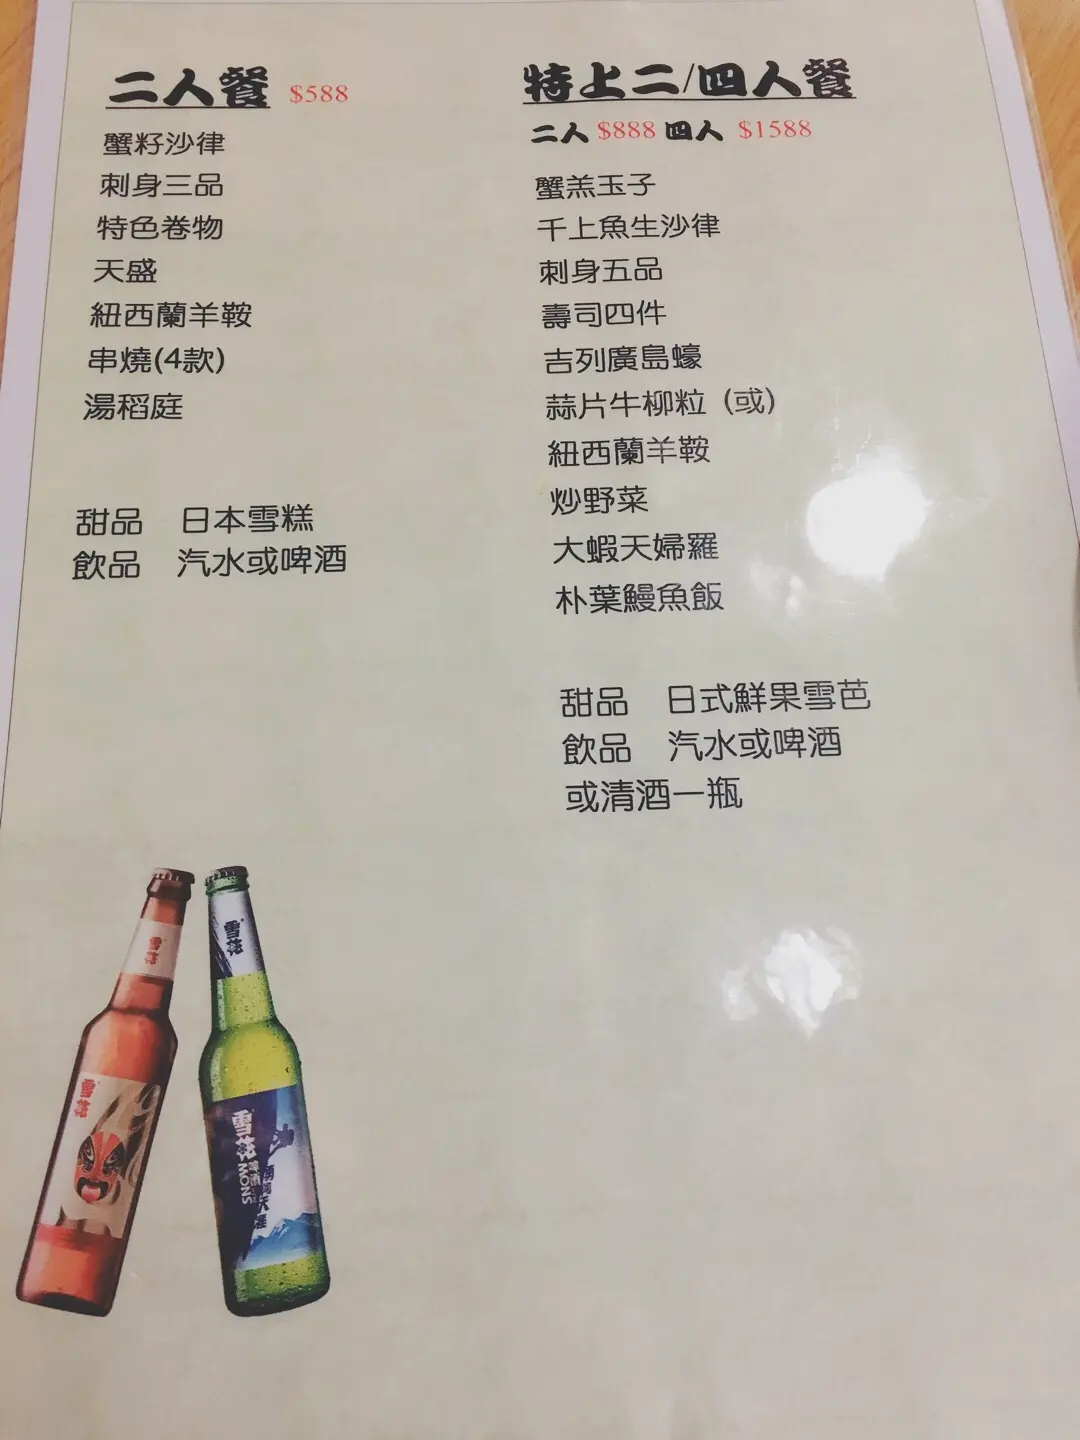 二人餐 $588
蟹籽沙律
刺身三品
特色卷物
天盛
紐西蘭羊鞍
串燒(4款)
湯稻庭
甜品 日本雪糕
飲品 汽水或啤酒
特上二/四人餐
二人 $888 四人 $1588
蟹羔玉子
千上魚生沙律
刺身五品
壽司四件
吉列廣島蠔
蒜片牛柳粒 (或)
紐西蘭羊鞍
炒野菜
大蝦天婦羅
朴葉鰻魚飯
甜品 日式鮮果雪芭
飲品 汽水或啤酒
或清酒一瓶
雪花
雪花
雪花
雪花
啤酒
SNOW
勇闖天涯